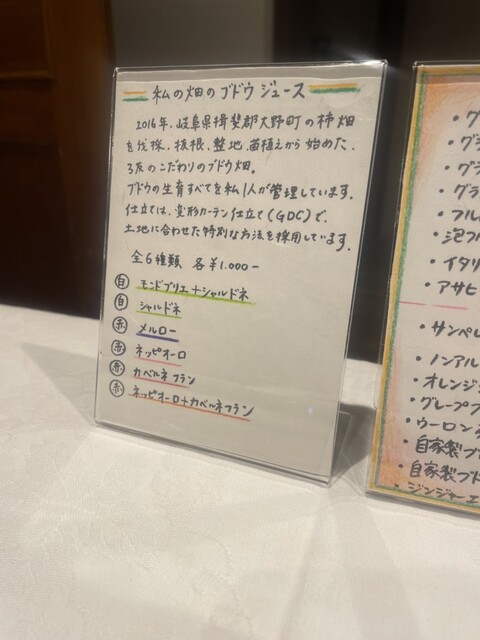 私の畑のブドウジュース
2016年、岐阜県揖斐郡大野町の柿畑
を伐採、抜根、整地、苗植えから始めた、
3反のこだわりのブドウ畑。
ブドウの生育すべてを私1人が管理しています。
仕立ては、変形カーテン仕立て(GDC)で、
土地に合わせた特別な方法を採用しています。
全6種類 各¥1.000-
白 モンドブリエ+シャルドネ
白 シャルドネ
赤 メルロー
赤 ネッビオーロ
赤 カベルネフラン
赤 ネッビオーロ+カベルネフラン
・グ
・グラ
・グラ
・グラ
・フル
・泡フ
・イタリ
・アサヒ
・サンペレ
・ノンアル
・オレンジ
・グレープフ
・ウーロン
・自家製ブ
・自家製ブド
・ジンジャーエ